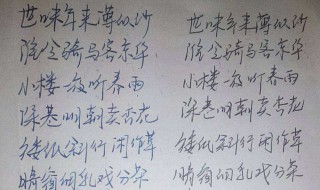 世味年来薄似纱
谁令骑马客京华
小楼一夜听春雨
深巷明朝卖杏花
矮纸斜行闲作草
晴窗细乳戏分茶
世味年来薄似纱
谁令骑马客京华
小楼一夜听春雨
深巷明朝卖杏花
矮纸斜行闲作草
晴窗细乳戏分茶